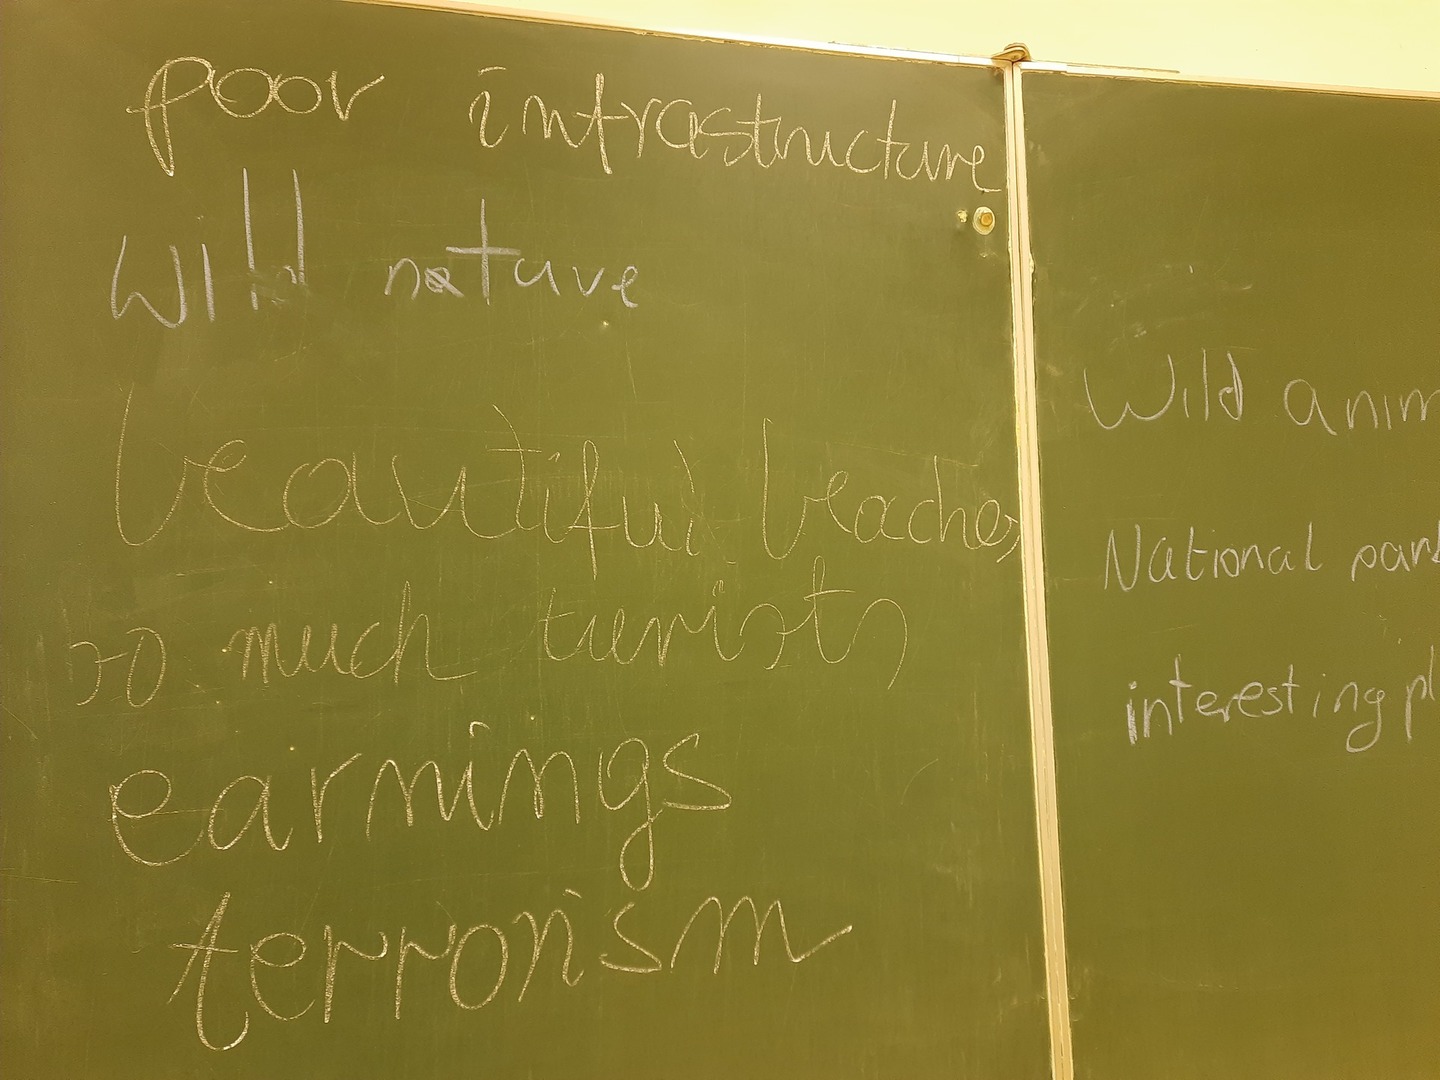 poor infrastructure
Wild nature
beautiful beaches
so much turists
earnings
terrorism
Wild anim
National park
interesting pl